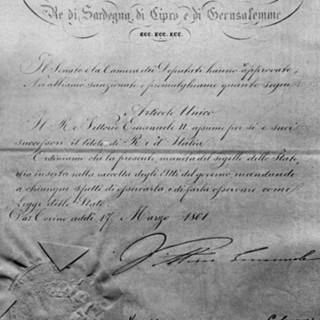 Re di Sardegna, di Cipro e di Gerusalemme
ecc. ecc. ecc.
Il Senato e la Camera dei Deputati hanno approvato,
Noi abbiamo sanzionato e promulghiamo quanto segue:
Articolo Unico
Il Re Vittorio Emanuele II assume per sè e suoi
successori il titolo di Re d'Italia.
Ordiniamo che la presente, munita del sigillo dello Stato,
sia inserta nella raccolta degli Atti del governo, mandando
a chiunque spetti di osservarla e di farla osservare come
Legge dello Stato.
Dat. Torino addì 17 Marzo 1861
Vittorio Emanuele